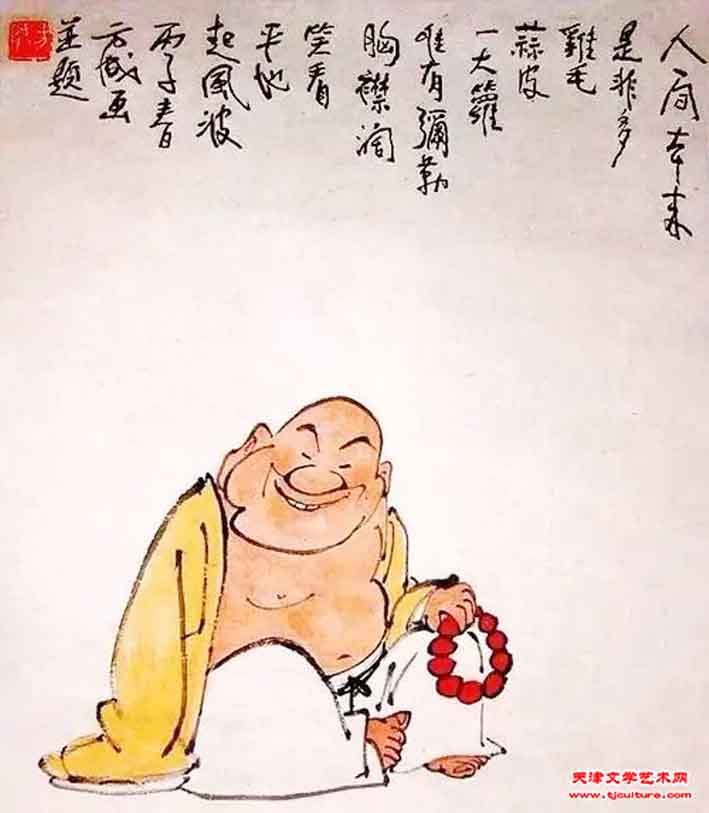 人间本来
是非多
雞毛
蒜皮
一大籮
唯有彌勒
胸襟阔
笑看
平地
起風波
丙子春
方成画
並題
天津文学艺术网
www.tjculture.com